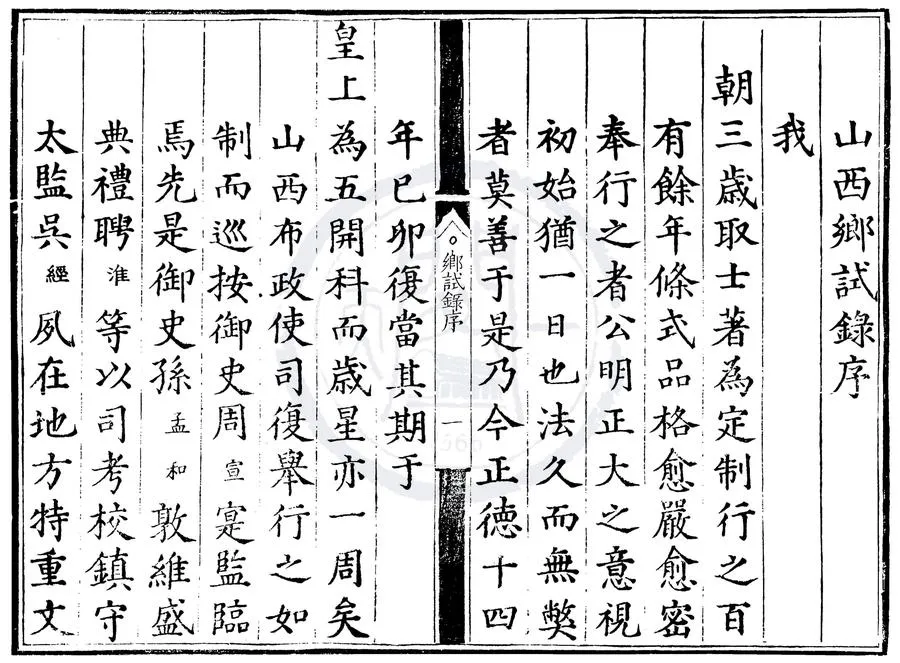 山西鄉試錄序
我
朝三歲取士著為定制行之百
有餘年條式品格愈嚴愈密
奉行之者公明正大之意視
初始猶一日也法久而無弊
者莫善于是乃今正德十四
鄉試錄序
一
年已卯復當其期于
皇上為五開科而歲星亦一周矣
山西布政使司復舉行之如
制而巡按御史周宣寔監臨
焉先是御史孫孟和敦維盛
典禮聘淮等以司考校鎮守
太監吳經夙在地方特重文